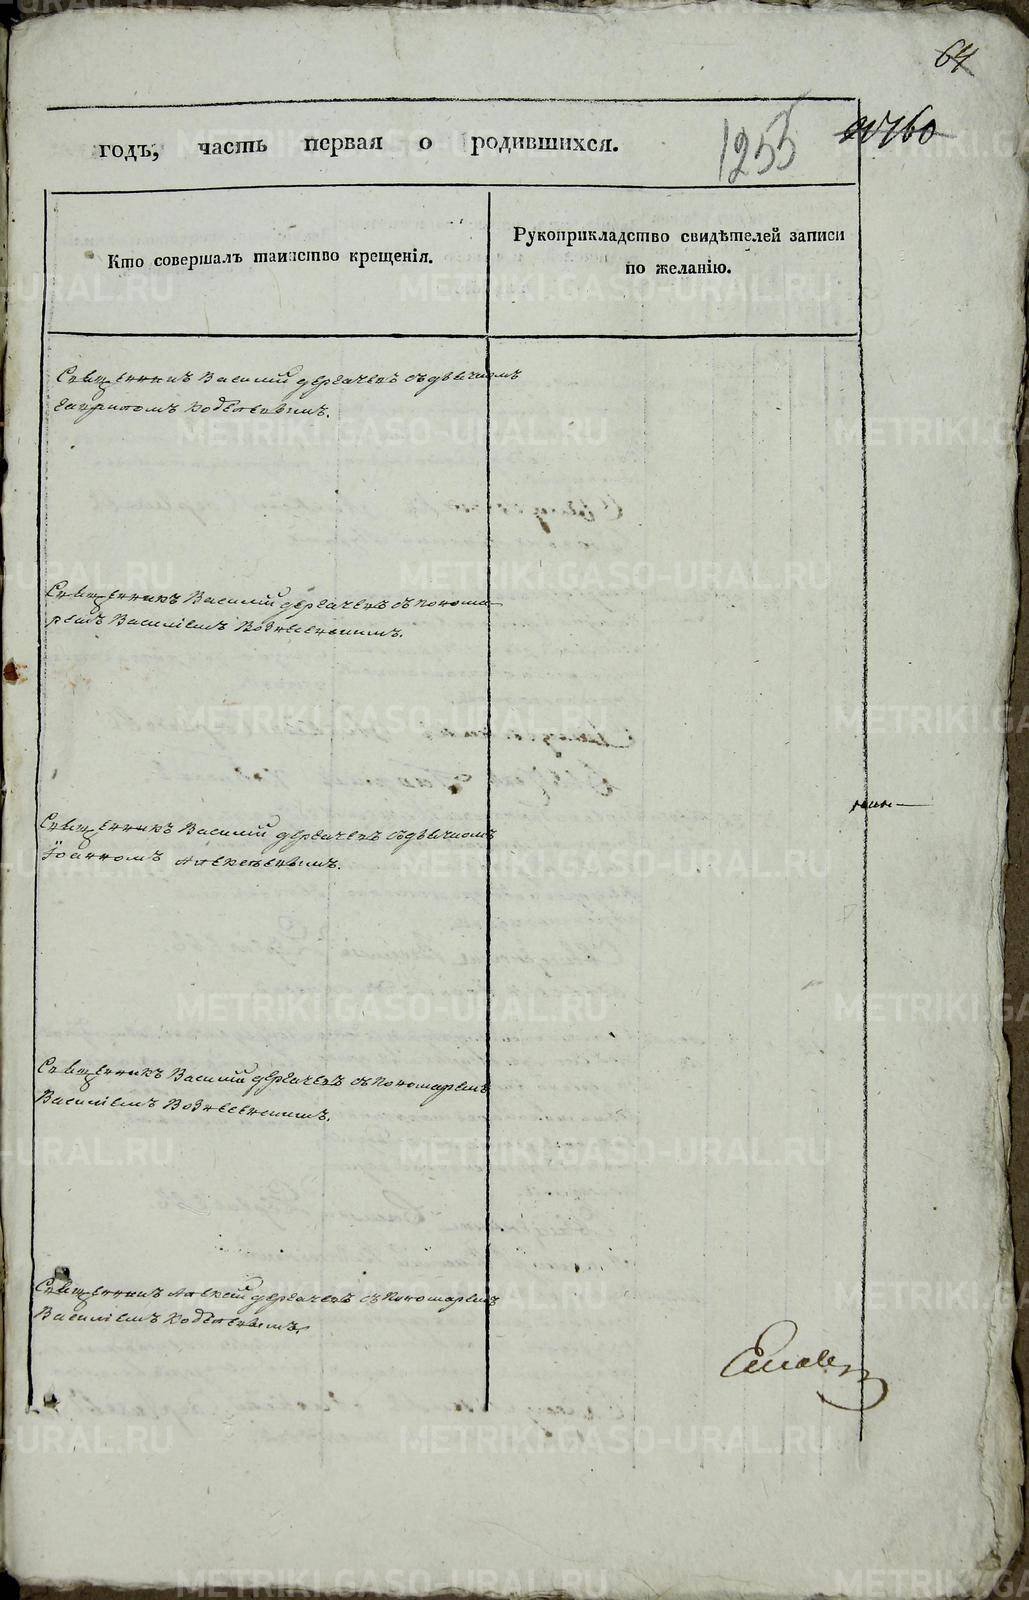 64
1255
760
годъ, часть первая о родившихся.
Кто совершалъ таинство крещенія.
Рукоприкладство свидѣтелей записи
по желанію.
Священникъ Василій Дергачевъ съ дьячкомъ
Гавріиломъ
Священникъ Василій Дергачевъ съ понома-
ремъ Василіемъ Вознесенскимъ.
Священникъ Василій Дергачевъ съ дьячкомъ
Іоанномъ Алексѣевымъ.
Священникъ Василій Дергачевъ съ пономаремъ
Василіемъ Вознесенскимъ.
Священникъ Алексій Дергачевъ съ пономаремъ
Василіемъ
METRIKI.GASO-URAL.RU